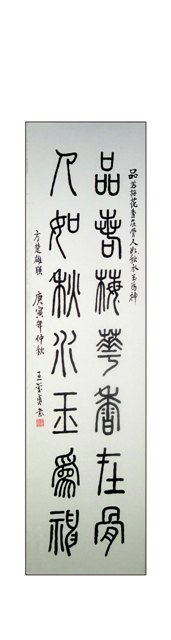 品若梅花香在骨人如秋水玉为神
品若梅華香在骨
人如秋水玉為神
方楚雄联 庚寅年仲秋 王